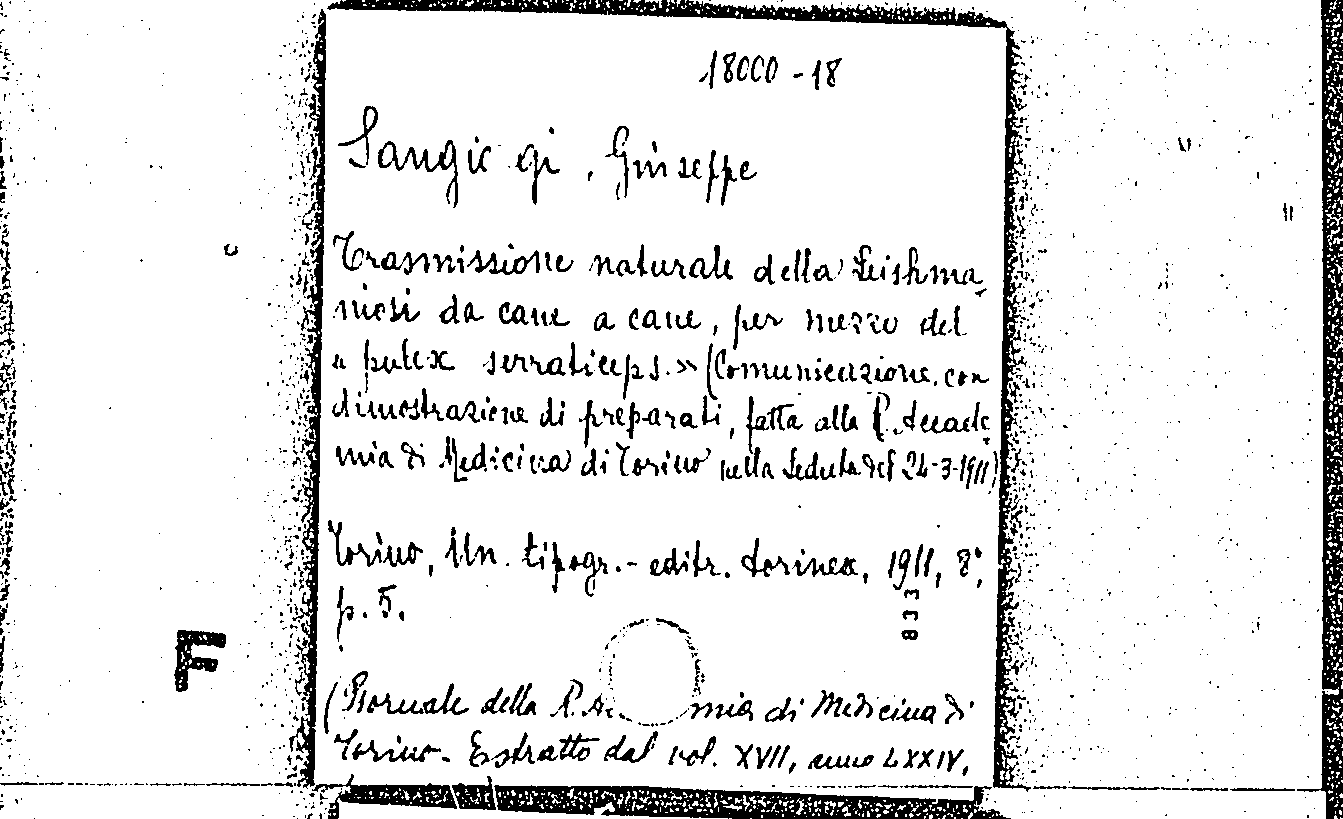 18000-18
Sangiorgi, Giuseppe
Trasmissione naturale della Leishma-
niosi da cane a cane, per mezzo del
« pulex serraticeps. » (Comunicazione, con
dimostrazione di preparati, fatta alla R. Accade-
mia di Medicina di Torino nella Seduta del 24-3-1911)
Torino, Un. tipogr.-editr. torinese, 1911, 8°,
p. 5.
833
F
(Giornale della R. Ac mia di Medicina di
Torino. Estratto dal vol. XVII, anno LXXIV,